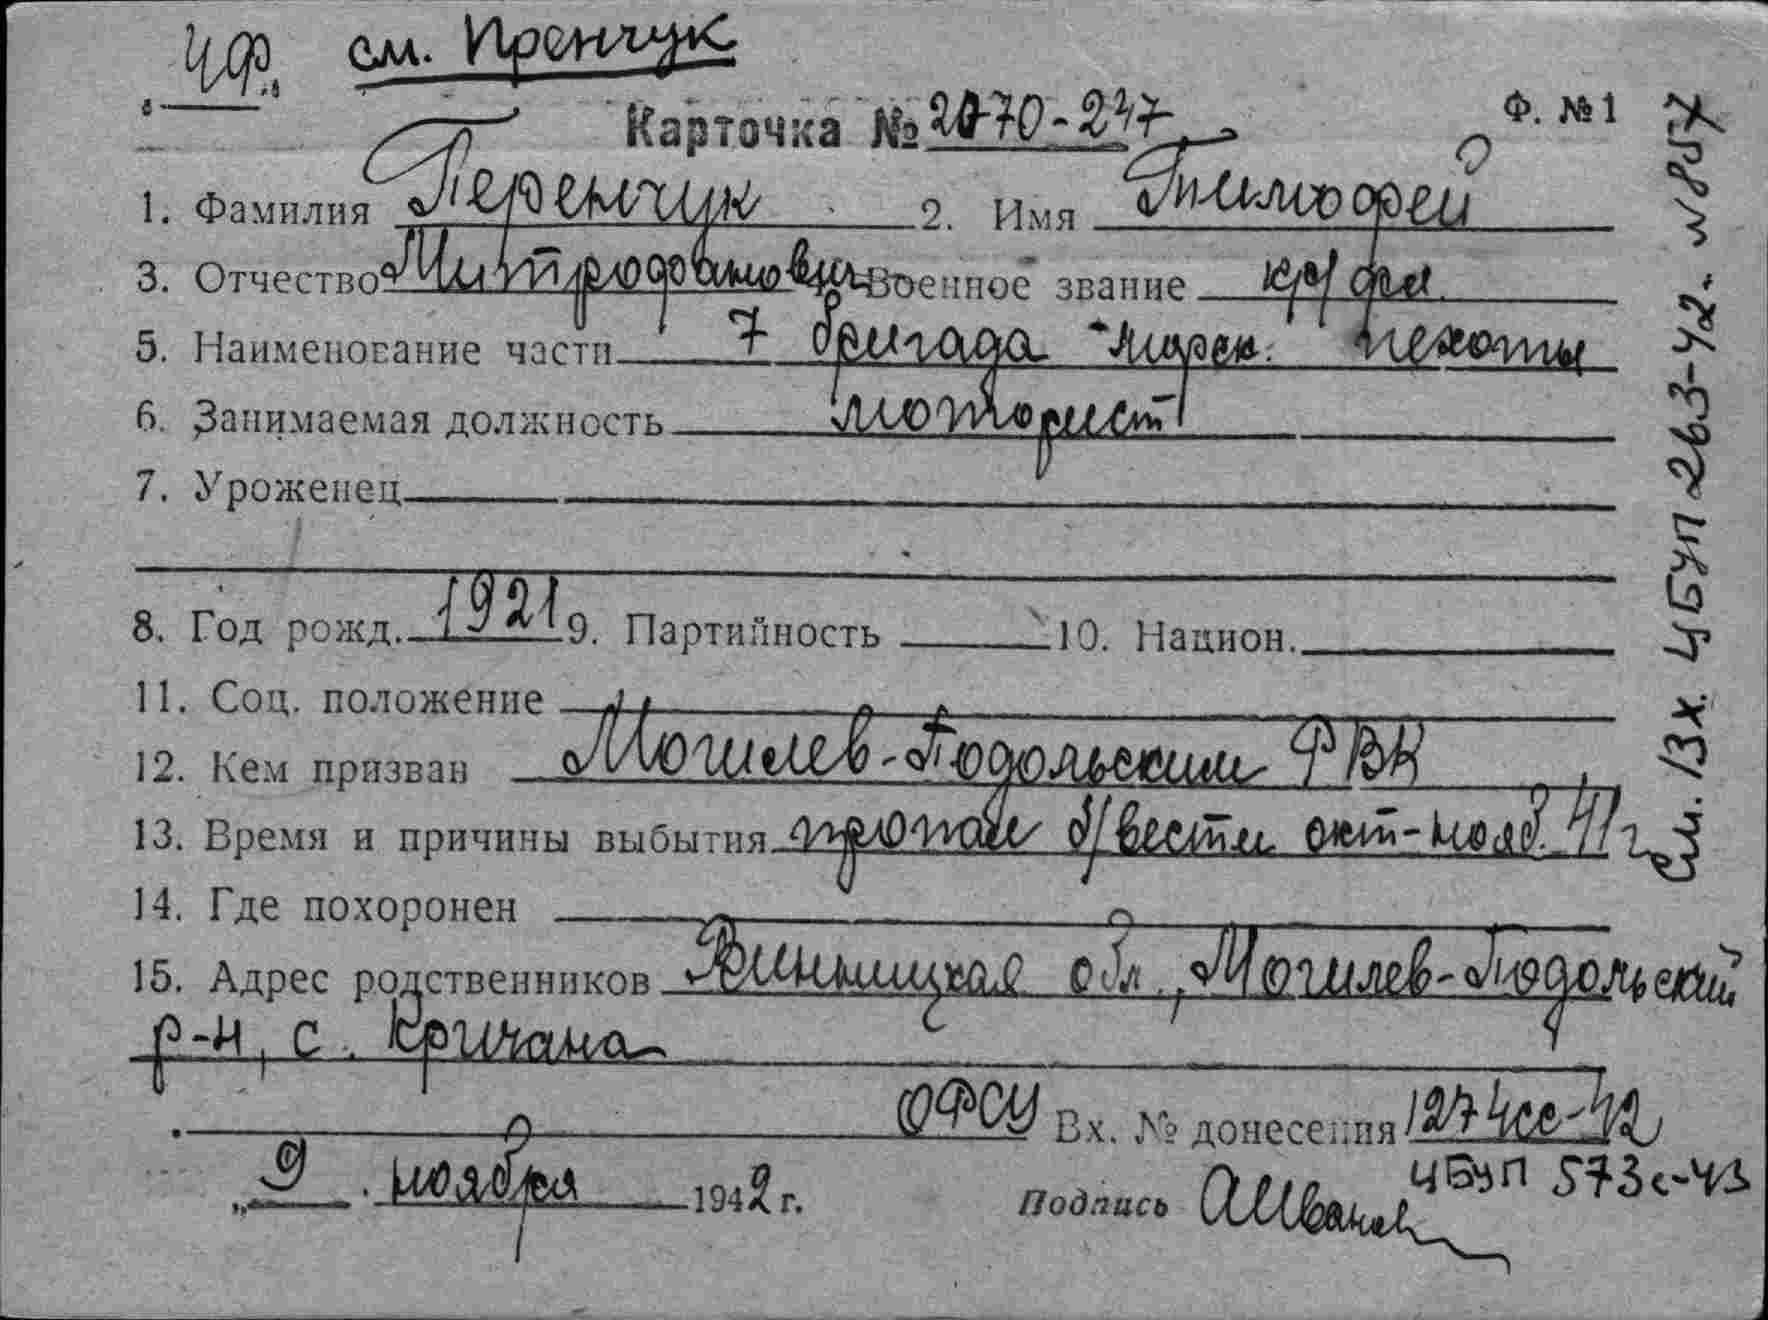 ЧФ. см. Иренчук
Карточка № 2070-247 Ф. № 1
1. Фамилия Теренчик 2. Имя Тимофей
3. Отчество Митрофанович Военное звание кр/фл.
5. Наименование части 7 бригада морск. пехоты
6. Занимаемая должность моторист
7. Уроженец
8. Год рожд. 1921 9. Партийность 10. Национ.
11. Соц. положение
12. Кем призван Могилев-Подольским РВК
13. Время и причины выбытия пропал б/вести окт-нояб. 41 г
14. Где похоронен
15. Адрес родственников Винницкая обл., Могилев-Подольский
р-н, с. Кричана
ОФСУ Вх. № донесения 1274сс-42
УБУП 573с-43
„ 9 . ноября 1942 г. Подпись
см. 13х. УБУП 263-42.